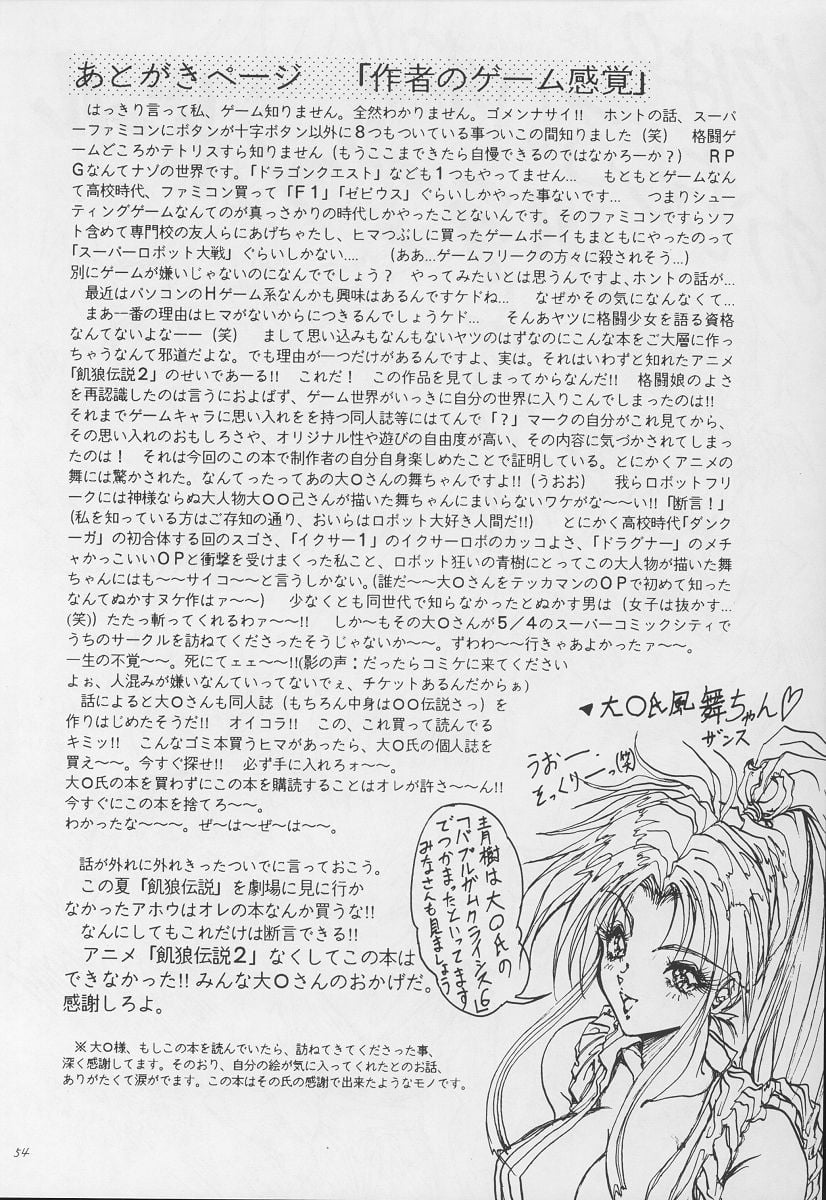 あとがきページ　「作者のゲーム感覚」
はっきり言って私、ゲーム知りません。全然わかりません。ゴメンナサイ!!　ホントの話、スーパー
ファミコンにボタンが十字ボタン以外に８つもついている事ついこの間知りました（笑）　格闘ゲ
ームどころかテトリスすら知りません（もうここまできたら自慢できるのではなかろーか？）　ＲＰ
Ｇなんてナゾの世界です。「ドラゴンクエスト」なども１つもやってません…　もともとゲームなん
て高校時代、ファミコン買って「Ｆ１」「ゼビウス」ぐらいしかやった事ないです…　つまりシュー
ティングゲームなんてのが真っさかりの時代しかやったことないんです。そのファミコンですらソフ
ト含めて専門校の友人らにあげちゃたし、ヒマつぶしに買ったゲームボーイもまともにやったのって
「スーパーロボット大戦」ぐらいしかない....　（ああ…ゲームフリークの方々に殺されそう…）
別にゲームが嫌いじゃないのになんででしょう？　やってみたいとは思うんですよ、ホントの話が…
最近はパソコンのＨゲーム系なんかも興味はあるんですケドね…　なぜかその気になんなくて…
まあ一番の理由はヒマがないからにつきるんでしょうケド…　そんあヤツに格闘少女を語る資格
なんてないよなーー（笑）　まして思い込みもなんもないヤツのはずなのにこんな本をご大層に作っ
ちゃうなんて邪道だよな。でも理由が一つだけがあるんですよ、実は。それはいわずと知れたアニメ
「飢狼伝説２」のせいであーる!!　これだ！　この作品を見てしまってからなんだ!!　格闘娘のよさ
を再認識したのは言うにおよばず、ゲーム世界がいっきに自分の世界に入りこんでしまったのは!!
それまでゲームキャラに思い入れをを持つ同人誌等にはてんで「？」マークの自分がこれ見てから、
その思い入れのおもしろさや、オリジナル性や遊びの自由度が高い、その内容に気づかされてしまっ
たのは！　それは今回のこの本で制作者の自分自身楽しめたことで証明している。とにかくアニメの
舞には驚かされた。なんてったってあの大〇さんの舞ちゃんですよ!!（うおお）　我らロボットフリ
ークには神様ならぬ大人物大〇〇己さんが描いた舞ちゃんにまいらないワケがな〜〜い!!「断言！」
（私を知っている方はご存知の通り、おいらはロボット大好き人間だ!!）　とにかく高校時代「ダンク
ーガ」の初合体する回のスゴさ、「イクサー１」のイクサーロボのカッコよさ、「ドラグナー」のメチ
ャかっこいいＯＰと衝撃を受けまくった私こと、ロボット狂いの青樹にとってこの大人物が描いた舞
ちゃんにはも〜〜サイコ〜〜と言うしかない。（誰だ〜〜大〇さんをテッカマンのＯＰで初めて知った
なんてぬかすヌケ作はァ〜〜）　少なくとも同世代で知らなかったとぬかす男は（女子は抜かす…
（笑））たたっ斬ってくれるわァ〜〜!!　しか〜もその大〇さんが５／４のスーパーコミックシティで
うちのサークルを訪ねてくださったそうじゃないか〜〜。ずわわ〜〜行きゃあよかったァ〜〜。
一生の不覚〜〜。死にてェェ〜〜!!（影の声：だったらコミケに来てください
よぉ、人混みが嫌いなんていってないでぇ、チケットあるんだからぁ）
話によると大〇さんも同人誌（もちろん中身は〇〇伝説さっ）を
作りはじめたそうだ!!　オイコラ!!　この、これ買って読んでる
キミッ!!　こんなゴミ本買うヒマがあったら、大〇氏の個人誌を
買え〜〜。今すぐ探せ!!　必ず手に入れろォ〜〜。
大〇氏の本を買わずにこの本を購読することはオレが許さ〜〜ん!!
今すぐにこの本を捨てろ〜〜。
わかったな〜〜〜。ぜ〜は〜ぜ〜は〜〜。
話が外れに外れきったついでに言っておこう。
この夏「飢狼伝説」を劇場に見に行か
なかったアホウはオレの本なんか買うな!!
なんにしてもこれだけは断言できる!!
アニメ「飢狼伝説２」なくしてこの本は
できなかった!!みんな大〇さんのおかげだ。
感謝しろよ。
※大〇様、もしこの本を読んでいたら、訪ねてきてくださった事、
深く感謝してます。そのおり、自分の絵が気に入ってくれたとのお話、
ありがたくて涙がでます。この本はその氏の感謝で出来たようなモノです。
▼大〇氏風舞ちゃん♡
ザンス
うおー
そっくりーっ（笑）
青樹は大〇氏の
「バブルガムクライシス６」
でつかまったといってます
みなさんも見ましょう
54